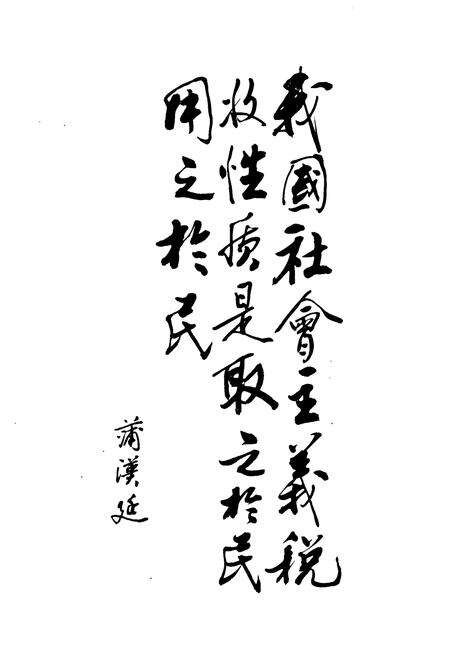 我國社會主義税
收性质是取之於民
用之於民
蒲漢延